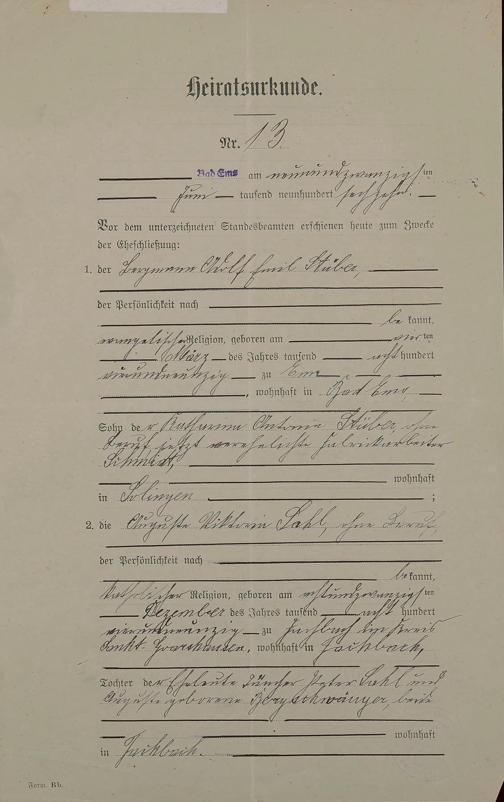 Heiratsurkunde.
Nr. 13.
Bad Ems am neunundzwanzigsten
Juni tausend neunhundert sechzehn.
Vor dem unterzeichneten Standesbeamten erschienen heute zum Zwecke
der Eheschließung:
1. der Bergmann Adolf Emil Stüber,
der Persönlichkeit nach
bekannt,
evangelischer Religion, geboren am vierten
März des Jahres tausend acht hundert
vierundneunzig zu Ems
, wohnhaft in Bad Ems
Sohn der Katharina Antonie Stüber, ohne
Beruf, jetzt verehelichte Fabrikarbeiter
wohnhaft
in Solingen ;
2. die Auguste Viktoria Sahl, ohne Beruf,
der Persönlichkeit nach
bekannt,
katholischer Religion, geboren am achtundzwanzigsten
Dezember des Jahres tausend acht hundert
vierundneunzig zu Fachbach im Kreis
Sankt Goarshausen, wohnhaft in Fachbach,
Tochter der Eheleute Tüncher Peter Sahl und
Auguste geborene beide
wohnhaft
in Fachbach.
Form. Bb.